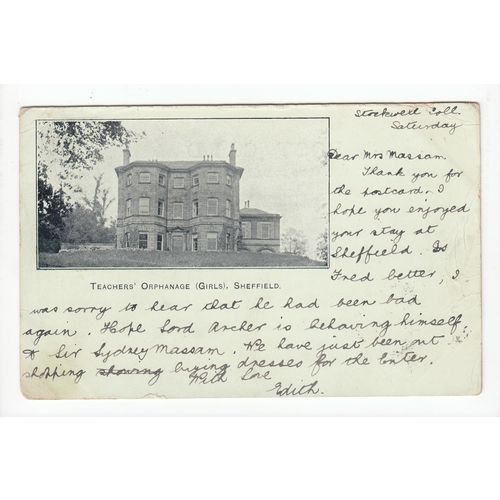 Stockwell Coll.
Saturday
Dear Mrs Massam.
Thank you for
the postcard. I
hope you enjoyed
your stay at
Sheffield. Is
Fred better, I
TEACHERS' ORPHANAGE (GIRLS), SHEFFIELD.
was sorry to hear that he had been bad
again. Hope Lord Archer is behaving himself.
& Sir Sydney Massam. We have just been out
shopping showing buying dresses for the Enter.
With Love
Edith.